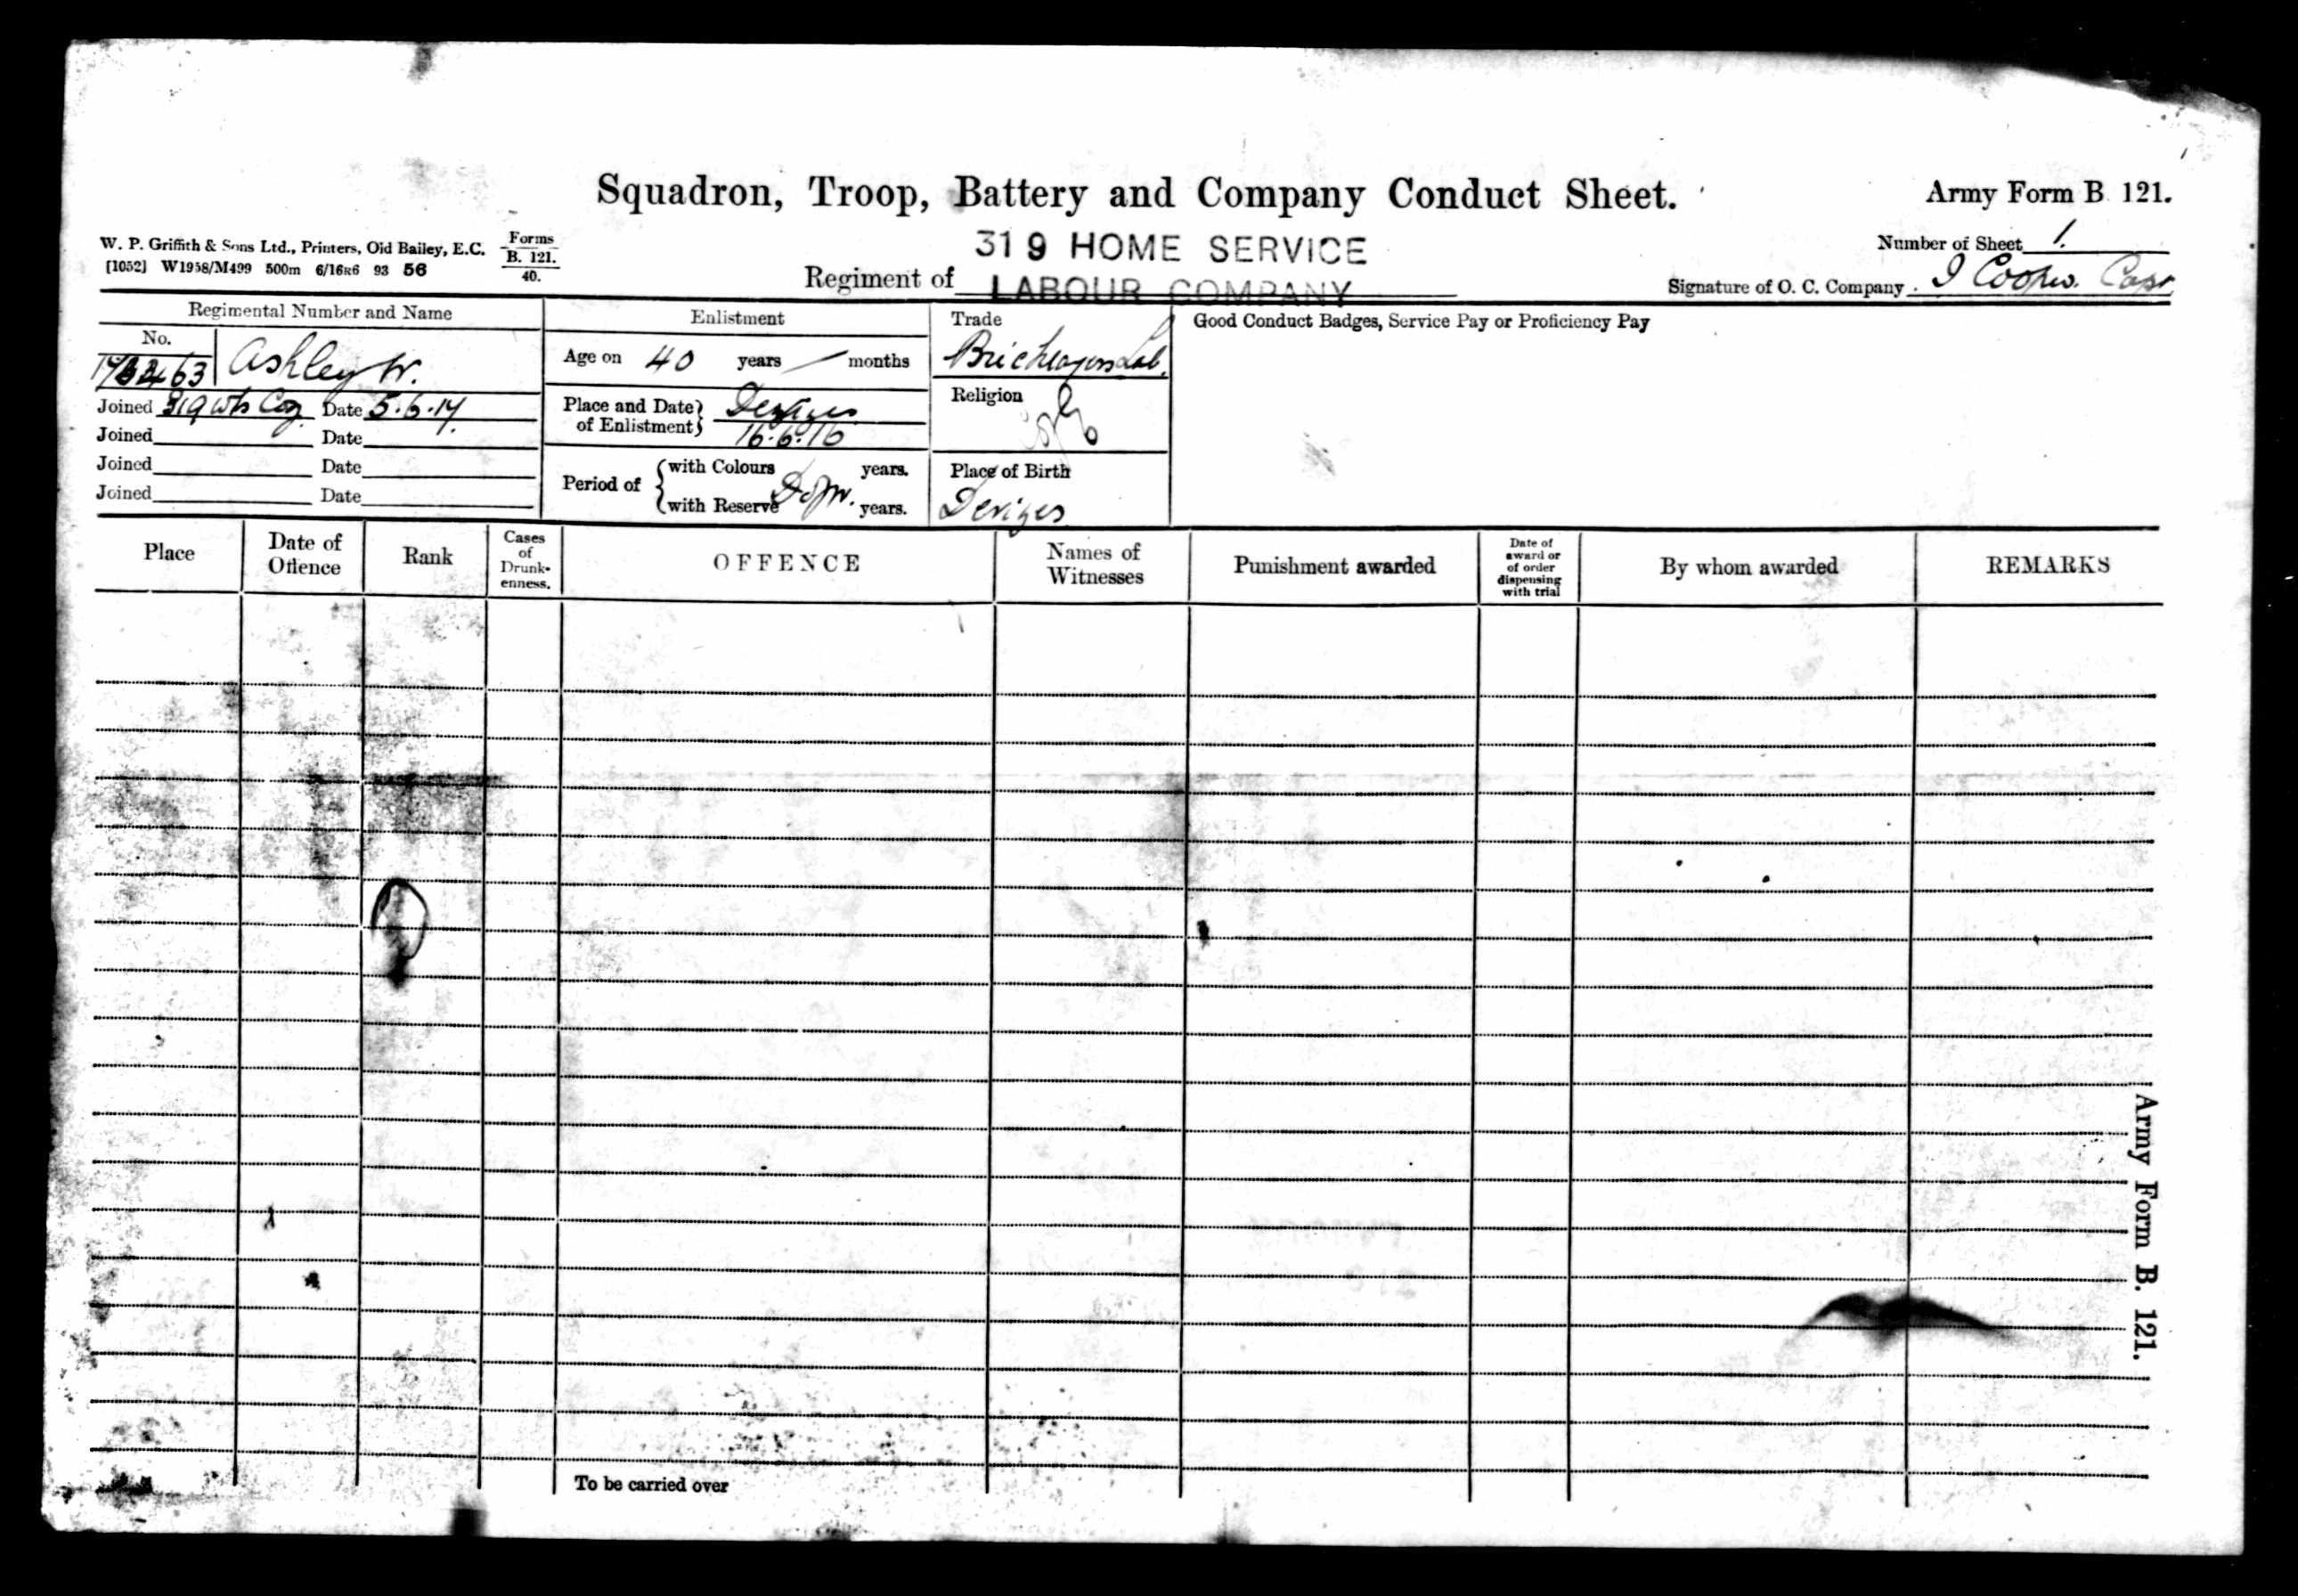 Squadron, Troop, Battery and Company Conduct Sheet.
Army Form B 121.
W. P. Griffith & Sons Ltd., Printers, Old Bailey, E.C.
[1052] W1958/M499 500m 6/16R6 93 56
Forms
B. 121.
40.
Number of Sheet 1.
Regiment of 319 HOME SERVICE
LABOUR COMPANY
Signature of O. C. Company
Regimental Number and Name
No.
Ashley W.
Joined 319 Date 5.6.17.
Joined Date
Joined Date
Joined Date
Enlistment
Age on 40 years months
Place and Date of Enlistment Devizes
16.6.16
Period of with Colours years.
with Reserve years.
Trade
Bricklayers Lab.
Religion
Place of Birth
Devizes
Good Conduct Badges, Service Pay or Proficiency Pay
Place
Date of Offence
Rank
Cases of Drunk-enness.
OFFENCE
Names of Witnesses
Punishment awarded
Date of award or of order dispensing with trial
By whom awarded
REMARKS
To be carried over
Army Form B. 121.